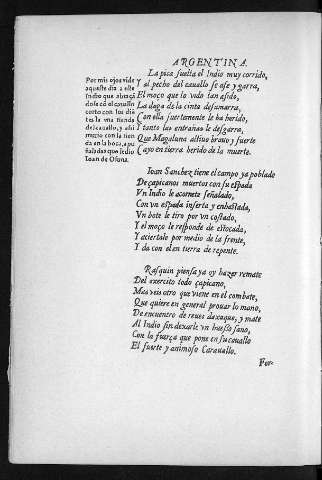 ARGENTINA.
La pica suelta el Indio muy corrido,
Y al pecho del cauallo se ase y garra,
El moço que lo vido tan asido,
La daga de la cinta desamarra,
Con ella fuertemente le ha herido,
Y tanto las entrañas le desgarra,
Que Magaluna altiuo brauo y fuerte
Cayo en tierra herido de la muerte.
Por mis ojos vide
aqueste dia a este
Indio que abraçã
dose cõ el cauallo
corto con los diẽ
tes la vna rienda
del cauallo, y assi
murio con la rien
da en la boca, a pu
ñaladas que le dio
Ioan de Osuna.
Ioan Sanchez tiene el campo ya poblado
De çapicanos muertos con su espada
Vn Indio le acomete señalado,
Con vn espada inserta y enhastada,
Vn bote le tiro por vn costado,
Y el moço le responde de estocada,
Y aciertalo por medio de la frente,
Y da con el en tierra de repente.
Rasquin piensa ya oy hazer remate
Del exercito todo çapicano,
Mas veis otro que viene en el combate,
Que quiere en general prouar la mano,
De encuentro de reues dataque, y mate
Al Indio sin dexarle vn huesso sano,
Con la fuerça que pone en su cauallo
El fuerte y animoso Carauallo.
For-